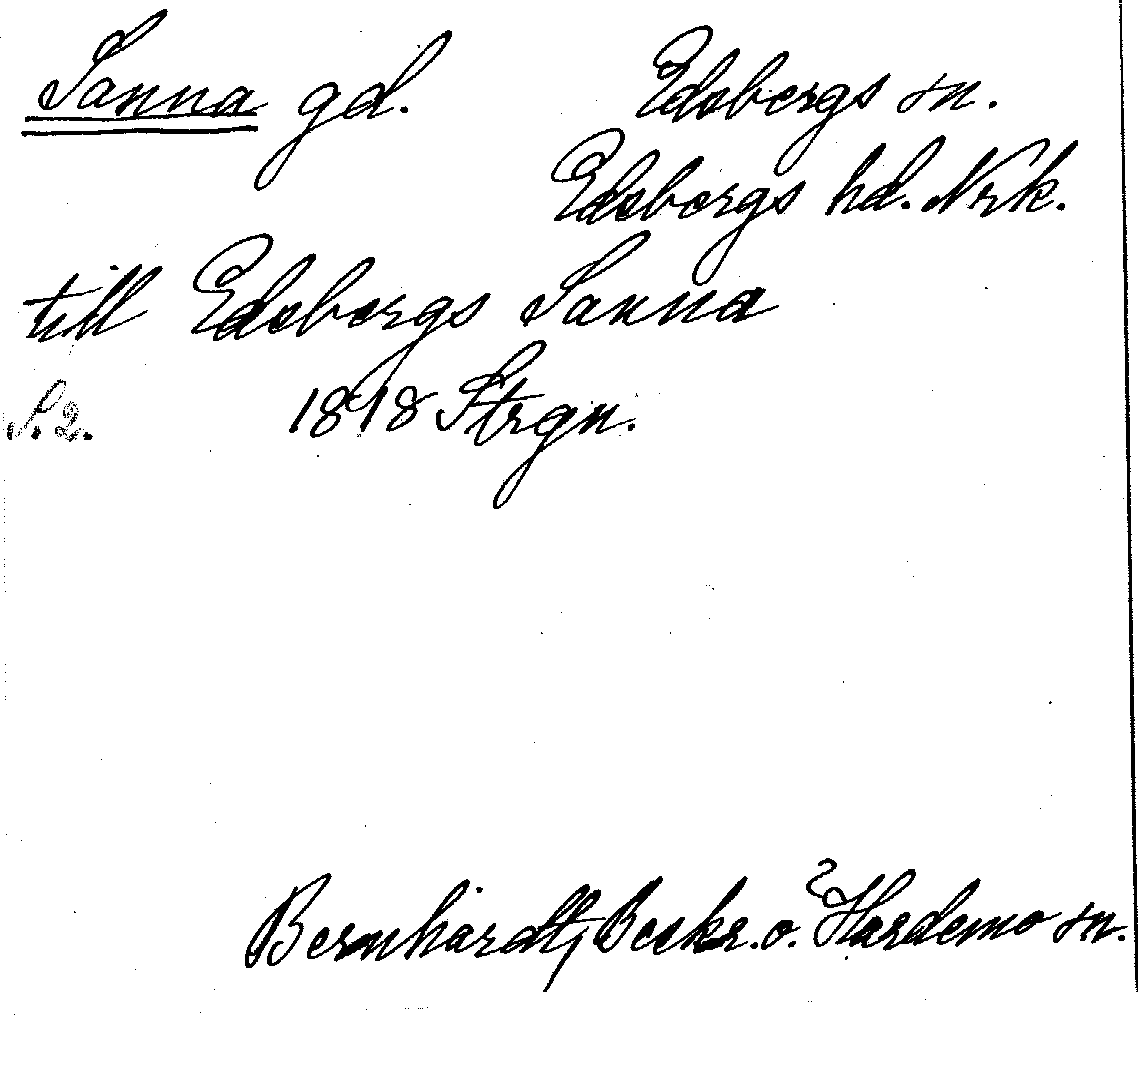 Sanna gd. Edsbergs sn.
Edsbergs hd. Nrk.
till Edsbergs Sanna
S. 2. 1818 Strgn.
Bernhardt, Beskr. o. Hardemo sn.